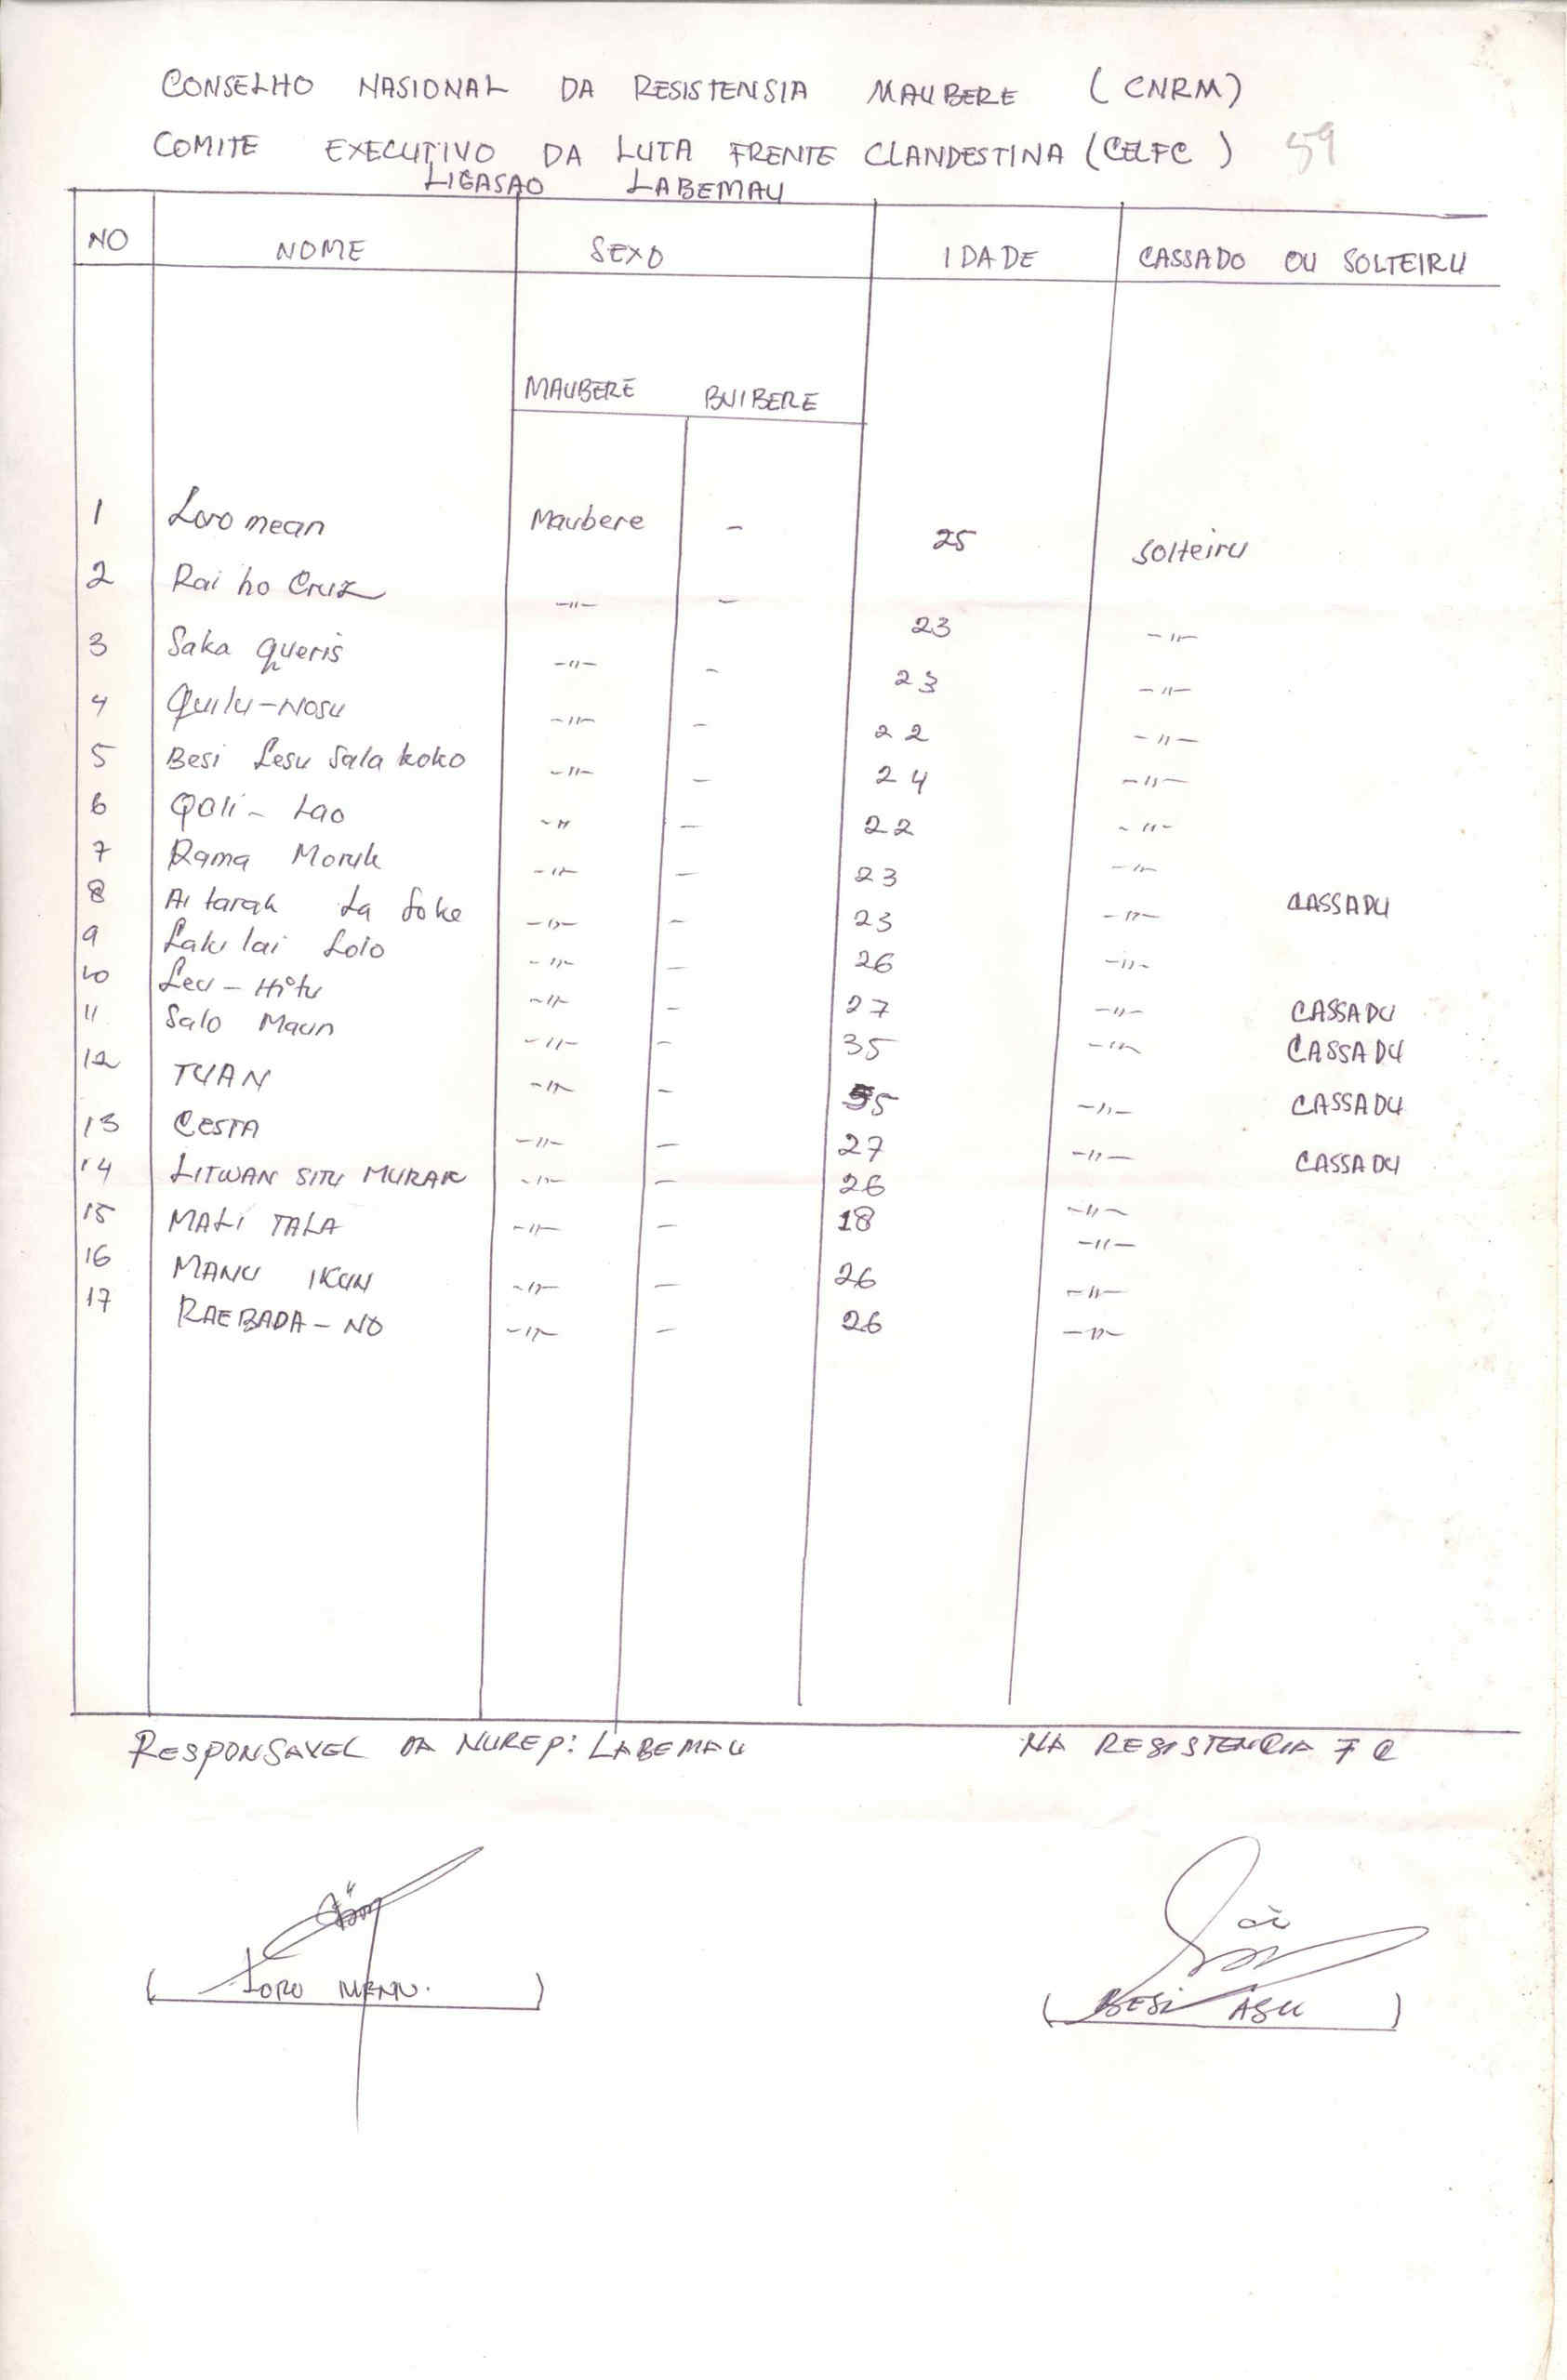 CONSELHO NASIONAL DA RESISTENSIA MAUBERE (CNRM)
COMITE EXECUTIVO DA LUTA FRENTE CLANDESTINA (CELFC) 59
LIGASAO LABEMAU
NO NOME SEXO IDADE CASSADO OU SOLTEIRU
MAUBERE BUIBERE
1 Loro mean Maubere - 25 Solteiru
2 Rai ho Cruz -"- - 23 -"-
3 Saka queris -"- - 23 -"-
4 Quilu-Nosu -"- - 22 -"-
5 Besi Lesu Sala koko -"- - 24 -"-
6 Qoli- Lao -" - 22 -"-
7 Rama Moruk -"- - 23 -"-
8 Ai tarak La Soke -"- - 23 -"- CASSADU
9 Laku lai Lolo -"- - 26 -"-
10 Leu - Hitu -"- - 27 -"- CASSADU
11 Salo Maun -"- - 35 -"- CASSADU
12 TUAN -"- - 35 -"- CASSADU
13 CESTA -"- - 27 -"- CASSADU
14 LITWAN SITU MURAK -"- - 26 -"-
15 MALI TALA -"- - 18 -"-
16 MANU IKUN -"- - 26 -"-
17 RAEBADA - NO -"- - 26 -"-
RESPONSAVEL DA NUREP: LABEMAU NA RESISTENCIA F C
( LORO MEAN. ) ( BESI ASU )